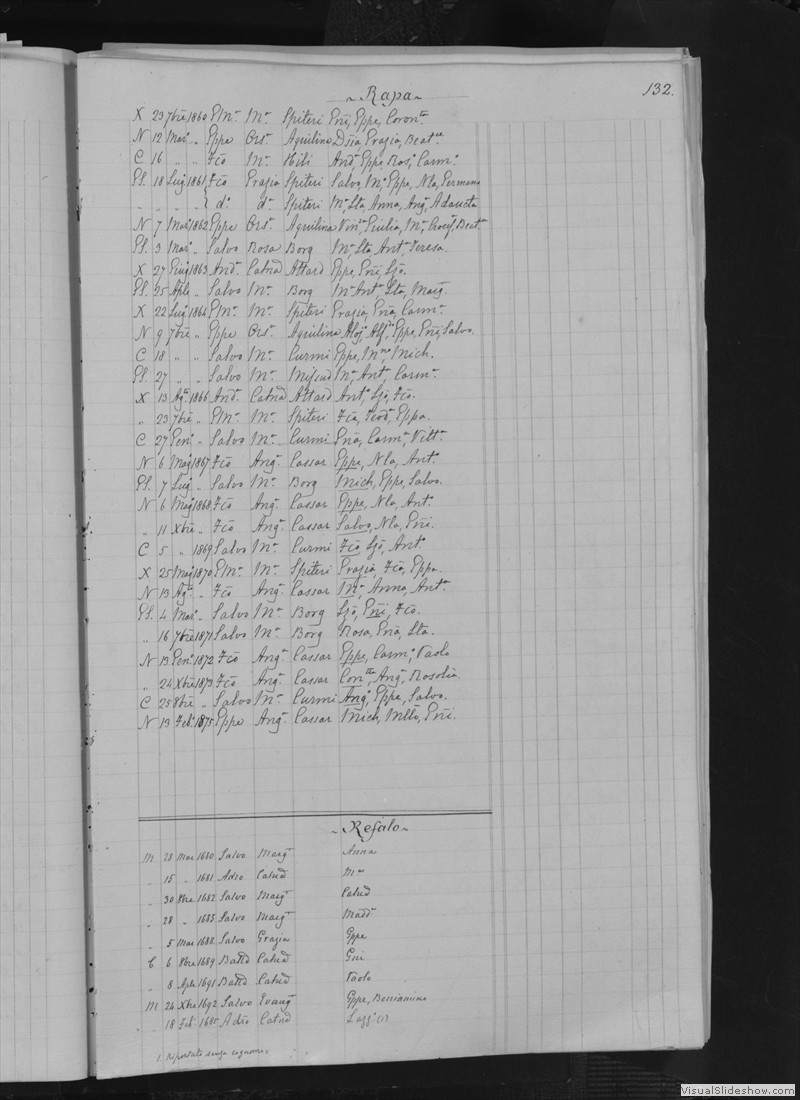 132.
~ Rapa ~
X 23 7bre 1860 P.Mr. Ma Spiteri Gni, Gppe, Coron
N 12 Mar. " Gppe Ors. Aquilina Grazia, Beat
C 16 " " Fco Ma Hili And, Gppe, Ros, Carm.
Ps. 18 Lug 1861 Fco Grazia Spiteri Salvo, Ma, Gppe, Nla, Germana
" " " " do do Spiteri Ma, Sta, Anna, Ang, Adaucta
N 7 Mar 1862 Gppe Ors. Aquilina Giulia, Ma, Beat
Ps. 3 Mar. " Salvo Rosa Borg Ma, Sta, Ant, Teresa
X 27 Giug 1863 And. Catna Attard Gppe, Gni, Sjo.
Ps. 25 Aple " Salvo Ma Borg Ma Ant, Sta, Marg.
X 22 Lug 1864 P.Mr. Ma Spiteri Grazia, Gna, Carm.
N 9 7bre " Gppe Ors. Aquilina Gppe, Gni, Salvo.
C 18 " " Salvo Ma Curmi Gppe, Mich.
Ps. 27 " " Salvo Ma Mifsud Ma, Ant, Carm.
X 13 1866 And. Catna Attard Ant, Sjo, Fco.
" 23 7bre " P.Mr. Ma Spiteri Fca, Teod, Gppa.
C 27 Gen. " Salvo Ma Curmi Gna, Carm, Vitt.
N 6 Mag 1867 Fco Ang. Cassar Gppe, Nla, Ant.
Ps. 7 Lug " Salvo Ma Borg Mich, Gppe, Salvo.
N 6 Mag 1868 Fco Ang. Cassar Gppe, Nla, Ant.
" 11 Xbre " Fco Ang. Cassar Salvo, Nla, Gni.
C 5 " 1869 Salvo Ma Curmi Fco, Sjo, Ant.
X 25 Mag 1870 P.Mr. Ma Spiteri Grazia, Fca, Gppa.
N 13 Ag. " Fco Ang. Cassar Ma, Anna, Ant.
Ps. 4 Mar. " Salvo Ma Borg Sjo, Gni, Fco.
" 16 7bre 1871 Salvo Ma Borg Rosa, Gna, Sta.
N 13 Gen. 1872 Fco Ang. Cassar Gppe, Carm, Paolo
" 24 Xbre 1873 Fco Ang. Cassar Con, Ang, Rosolia
C 25 8bre " Salvo Ma Curmi Ang, Gppe, Salvo.
N 13 Feb. 1875 Gppe Ang. Cassar Mich, Gni.
~ Refalo ~
M 28 Mar 1680 Salvo Marg Anna
" 15 " 1681 Adeo Catnd Ma
" 30 8bre 1682 Salvo Marg Catnd
" 28 " 1685 Salvo Marg Madd
" 5 Mar 1688 Salvo Grazia Gppe
C 6 8bre 1689 Battd Catnd Gni
" 8 Aple 1691 Battd Catnd Paolo
M 24 Xbre 1692 Salvo Evang Gppe, Beniamino
" 18 Feb 1685 Adeo Catnd Lazz (1)
1. Riportato senza cognome
VisualSlideshow.com